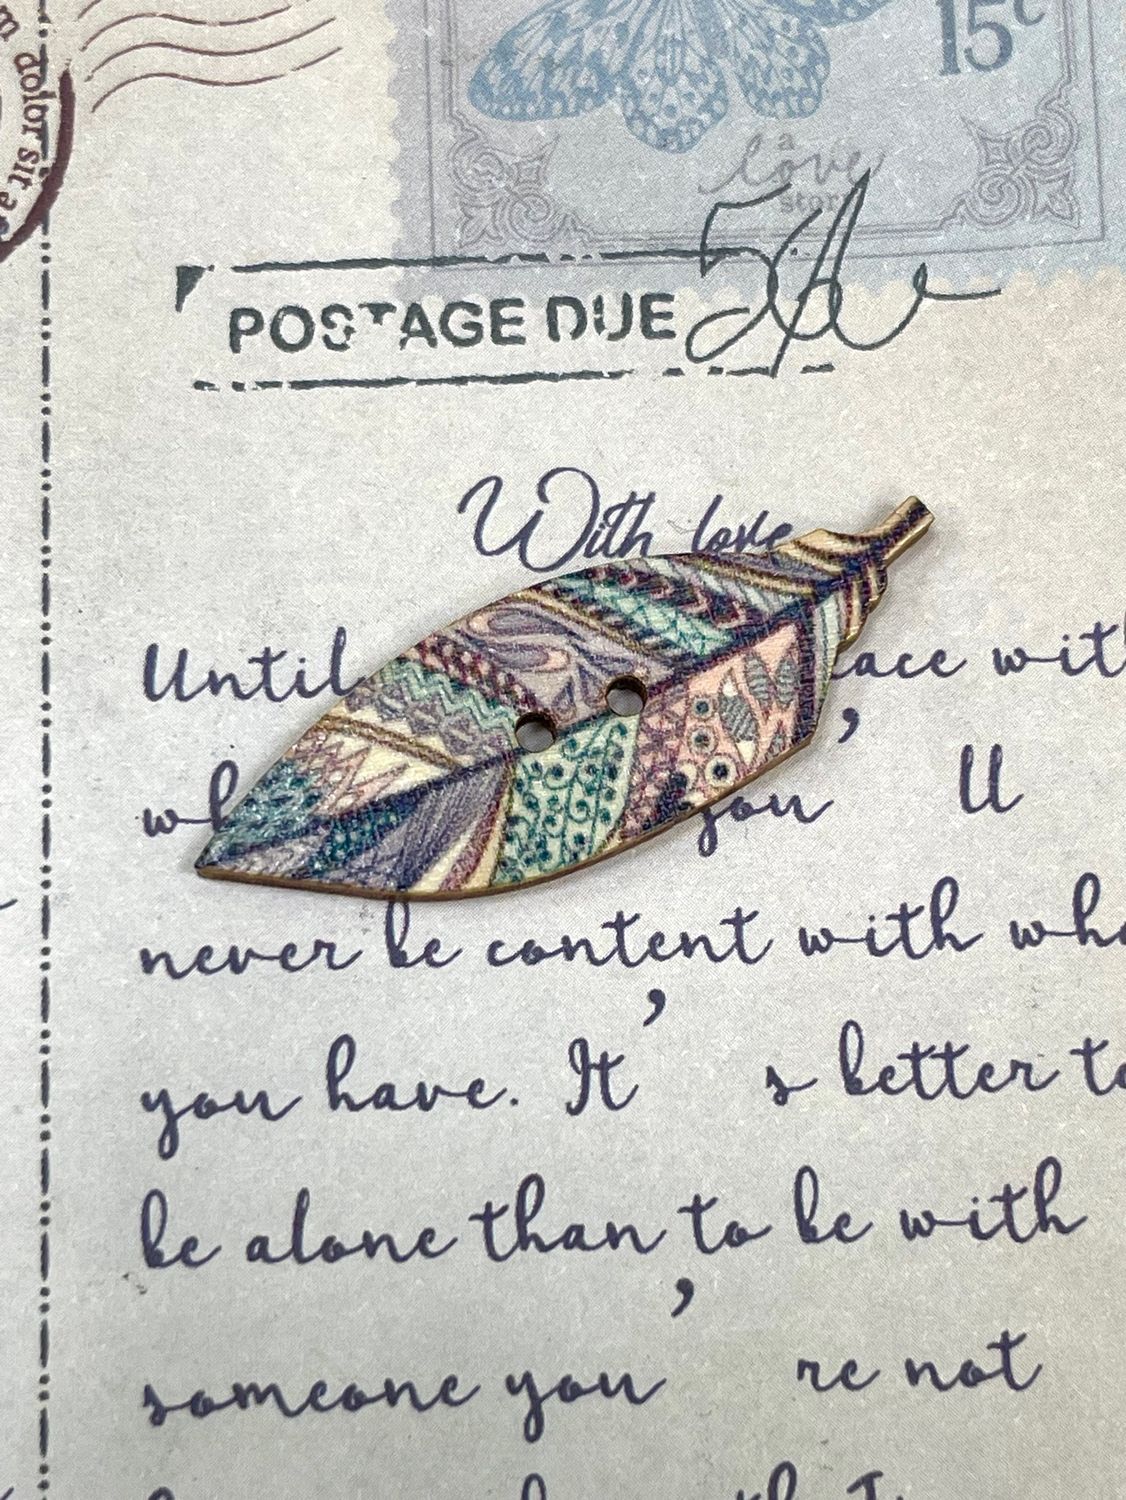 dolor sit a
15c
a
love
story
POSTAGE DUE
With love
Until ace with
wh you'll
never be content with wha
you have. It's better to
be alone than to be with
someone you're not